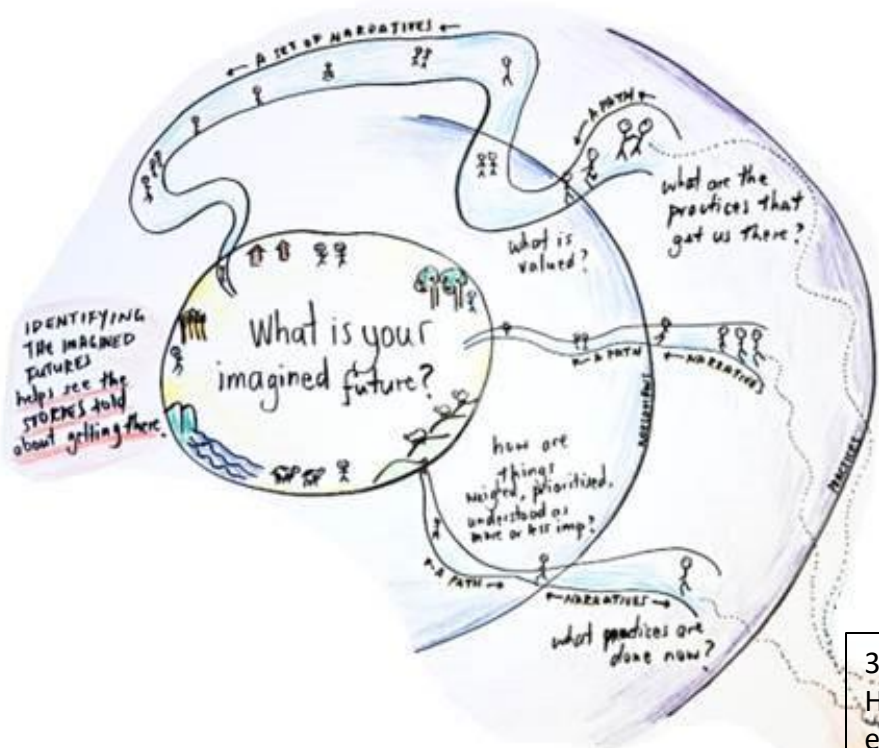 ← A SET OF NARRATIVES ←
← A PATH ←
what are the
practices that
get us there?
what is
valued?
IDENTIFYING
THE IMAGINED
FUTURES
helps see the
STORIES told
about getting there.
What is your
imagined future?
← A PATH
← NARRATIVE
how are
things
weighed, prioritised,
understood as
more or less imp?
PRACTICES
← A PATH →
← NARRATIVES →
what practices are
done now?
3
H
e